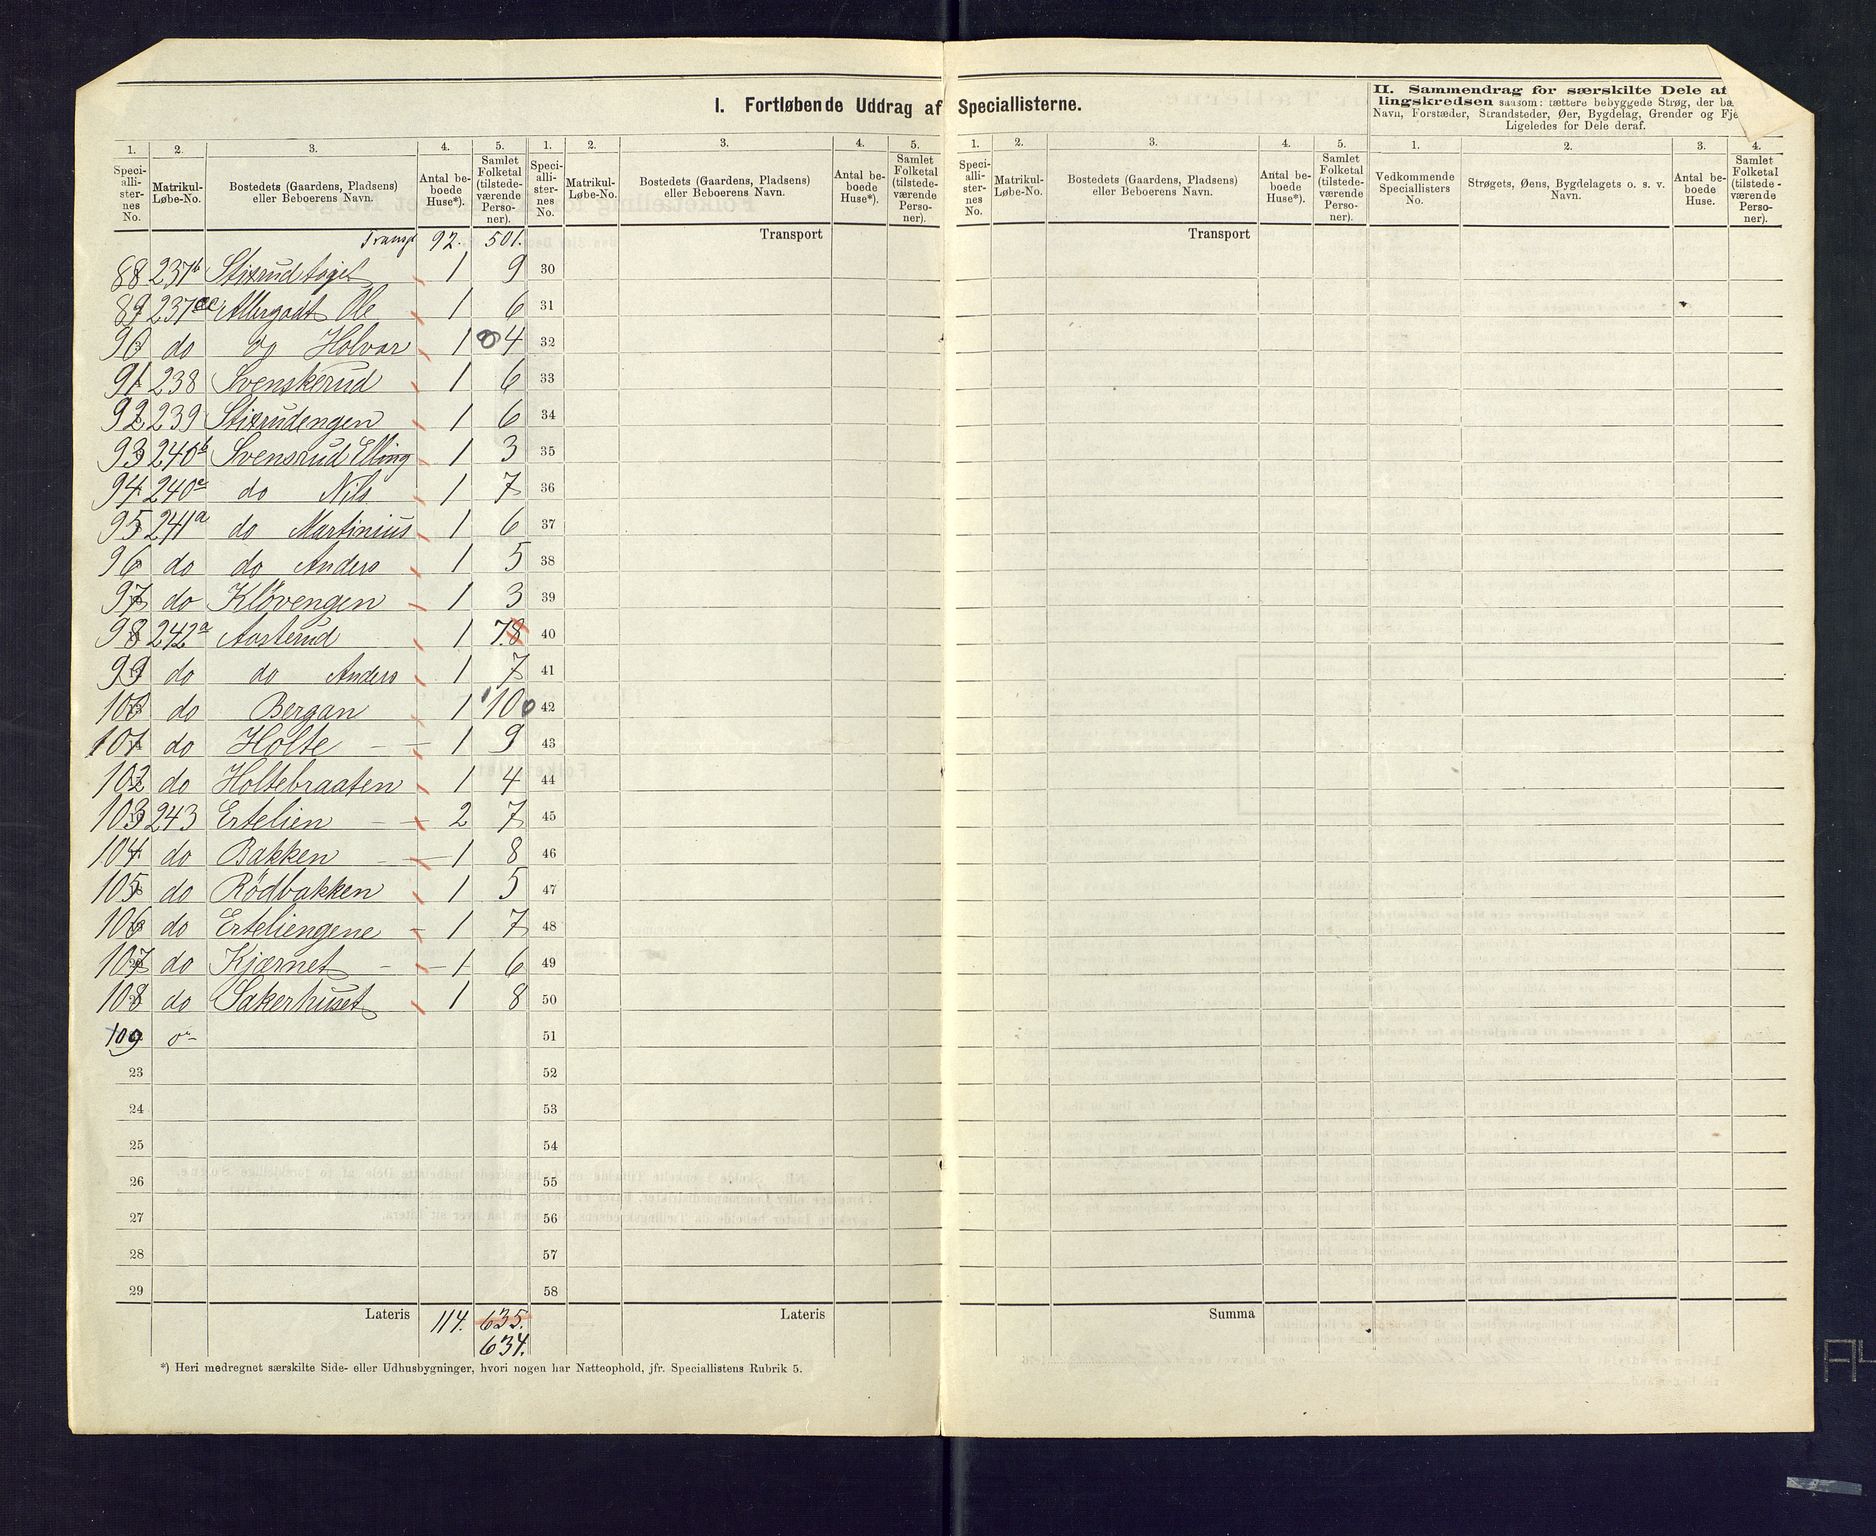 I. Fortløbende Uddrag af Speciallisterne.
II. Sammendrag for særskilte Dele af
lingskredsen saasom: tættere bebyggede Strøg, der bæ
Navn, Forstæder, Strandsteder, Øer, Bygdelag, Grender og Fje
Ligeledes for Dele deraf.
1. 2. 3. 4. 5. 1. 2. 3. 4. 5. 1. 2. 3. 4. 5. 1. 2. 3. 4.
Speciallisternes No. Matrikul-Løbe-No. Bostedets (Gaardens, Pladsens) eller Beboerens Navn. Antal beboede Huse*). Samlet Folketal (tilstedeværende Personer).
Speciallisternes No. Matrikul-Løbe-No. Bostedets (Gaardens, Pladsens) eller Beboerens Navn. Antal beboede Huse*). Samlet Folketal (tilstedeværende Personer).
Speciallisternes No. Matrikul-Løbe-No. Bostedets (Gaardens, Pladsens) eller Beboerens Navn. Antal beboede Huse*). Samlet Folketal (tilstedeværende Personer).
Vedkommende Speciallisters No. Strøgets, Øens, Bygdelagets o. s. v. Navn. Antal beboede Huse. Samlet Folketal (tilstedeværende Personer).
Transp 92. 501. Transport Transport
88 237b Stixrudtoget 1 9 30
89 237ac Allergodt Ole 1 6 31
90 do do Holvor 1 4 32
91 238 Svenskerud 1 6 33
92 239 Stixrudengen 1 6 34
93 240b Svensrud Elling 1 3 35
94 240c do Nils 1 7 36
95 241a do Martinius 1 6 37
96 do do Anders 1 5 38
97 do Kløvengen 1 3 39
98 242a Aasterud 1 7.8 40
99 do do Anders 1 7 41
100 do Bergan 1 10 42
101 do Holte 1 9 43
102 do Holtebraaten 1 4 44
103 243 Ertelien 2 7 45
104 do Bakken 1 8 46
105 do Rödbakken 1 5 47
106 do Erteliengene 1 7 48
107 do Kjærnet 1 6 49
108 do Sakerhuset 1 8 50
109 51
23 52
24 53
25 54
26 55
27 56
28 57
29 58
Lateris 114. 635. Lateris Summa
634.
*) Heri medregnet særskilte Side- eller Udhusbygninger, hvori nogen har Natteophold, jfr. Speciallistens Rubrik 5.